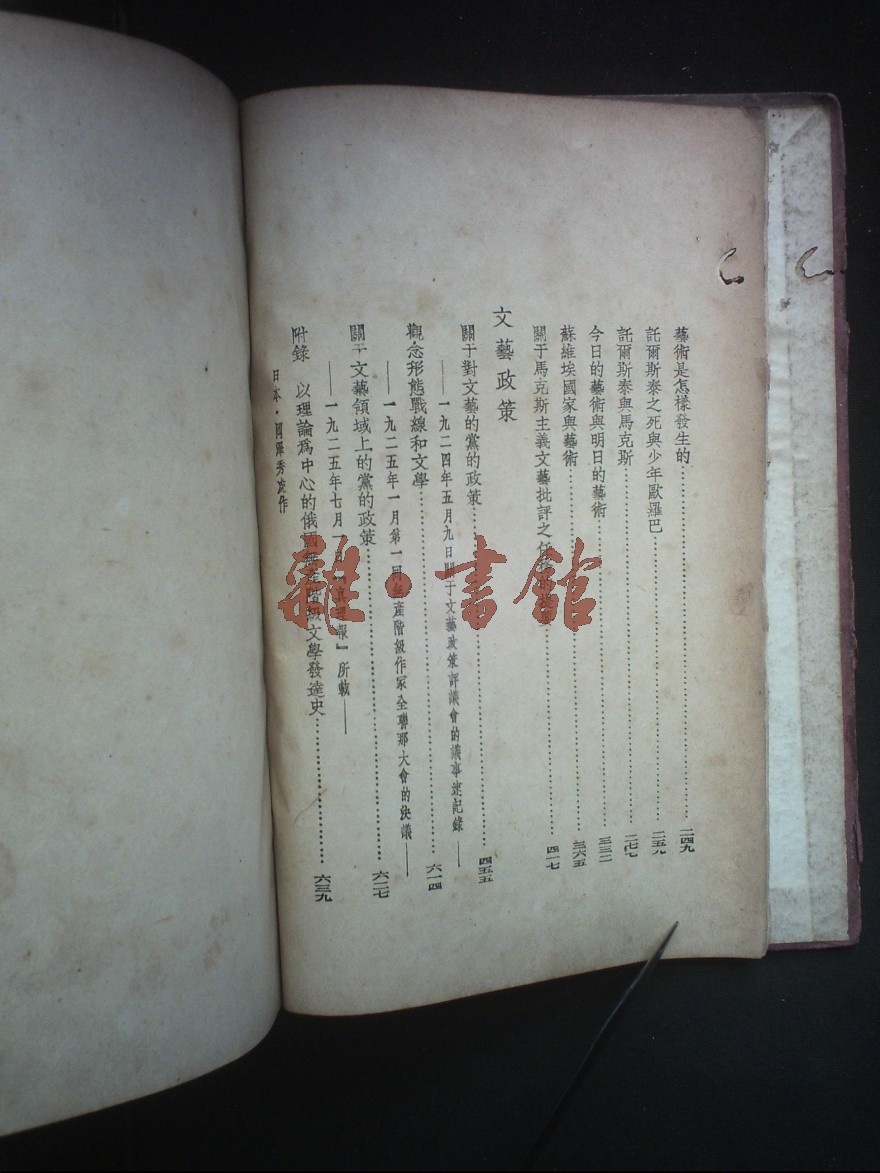 藝術是怎樣發生的……二四九
託爾斯泰之死與少年歐羅巴……二五九
託爾斯泰與馬克斯……二七七
今日的藝術與明日的藝術……三三二
蘇維埃國家與藝術……三六五
關于馬克斯主義文藝批評之任……四一七
文藝政策
關于對文藝的黨的政策……四五五
——一九二四年五月九日關于文藝政策評議會的議事速記錄——
觀念形態戰線和文學……六一四
——一九二五年一月第一回無產階級作家全聯邦大會的決議——
關于文藝領域上的黨的政策……六二七
——一九二五年七月 日『真理報』所載——
附錄 以理論爲中心的俄國無產階級文學發達史……六三九
日本·岡澤秀虎作
雜·書館